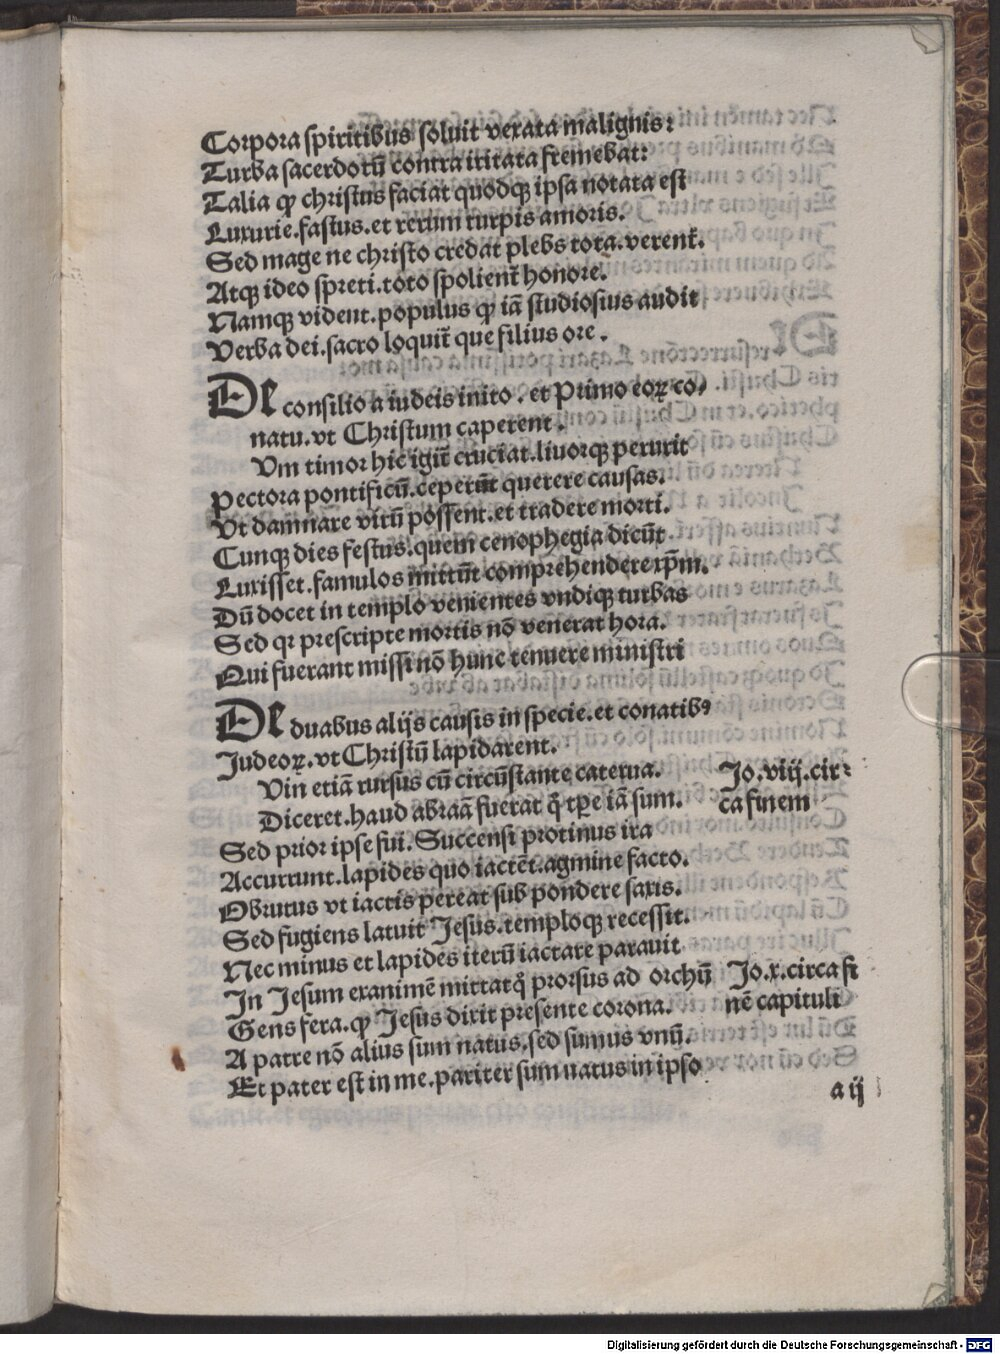 Corpora spiritibus soluit vexata malignis:
Turba sacerdotū contra irritata fremebat:
Talia ꝙ christus faciat quodqꝫ ipsa notata est
Luxurie.fastus.et rerum turpis amoris.
Sed mage ne christo credat plebs tota.verent᷑.
Atqꝫ ideo spreti.toto spolient᷑ honore.
Namqꝫ vident.populus ꝙ iā studiosius audit
Verba dei.sacro loquit᷑ que filius ore.
De consilio a iudeis inito.et Primo eoꝝ co⸗
natu.vt Christum caperent.
Vm timor hic igit᷑ cruciat.liuorqꝫ perurit
Pectora pontificū.ceperūt querere causas.
Vt damnare virū possent.et tradere morti.
Cunqꝫ dies festus.quem cenophegia dicūt
Luxisset.famulos mittūt comprehendere xp̄m.
Dū docet in templo venientes vndiqꝫ turbas
Sed qꝛ prescripte mortis nō venerat hora.
Qui fuerant missi nō hunc tenuere ministri
De duabus alijs causis in specie.et conatibꝰ
Judeoꝝ.vt Christū lapidarent.
Vin etiā rursus cū circūstante caterua.
Jo.viij.cir⸗
Diceret.haud abraā fuerat q̄ tꝑe iā sum.
ca finem
Sed prior ipse fui.Succensi protinus ira
Accurrunt.lapides quo iactēt.agmine facto.
Obrutus vt iactis pereat sub pondere saxis.
Sed fugiens latuit Jesus.temploqꝫ recessit.
Nec minus et lapides iterū iactare parauit
In Jesum exanimē mittatq̄ prorsus ad orchū
Jo.x.circa fi
Gens fera.ꝙ Jesus dixit presente corona.
nē capituli
A patre nō alius sum natus.sed sumus vnū.
Et pater est in me.pariter sum natus in ipso
a ij
Digitalisierung gefördert durch die Deutsche Forschungsgemeinschaft - DFG